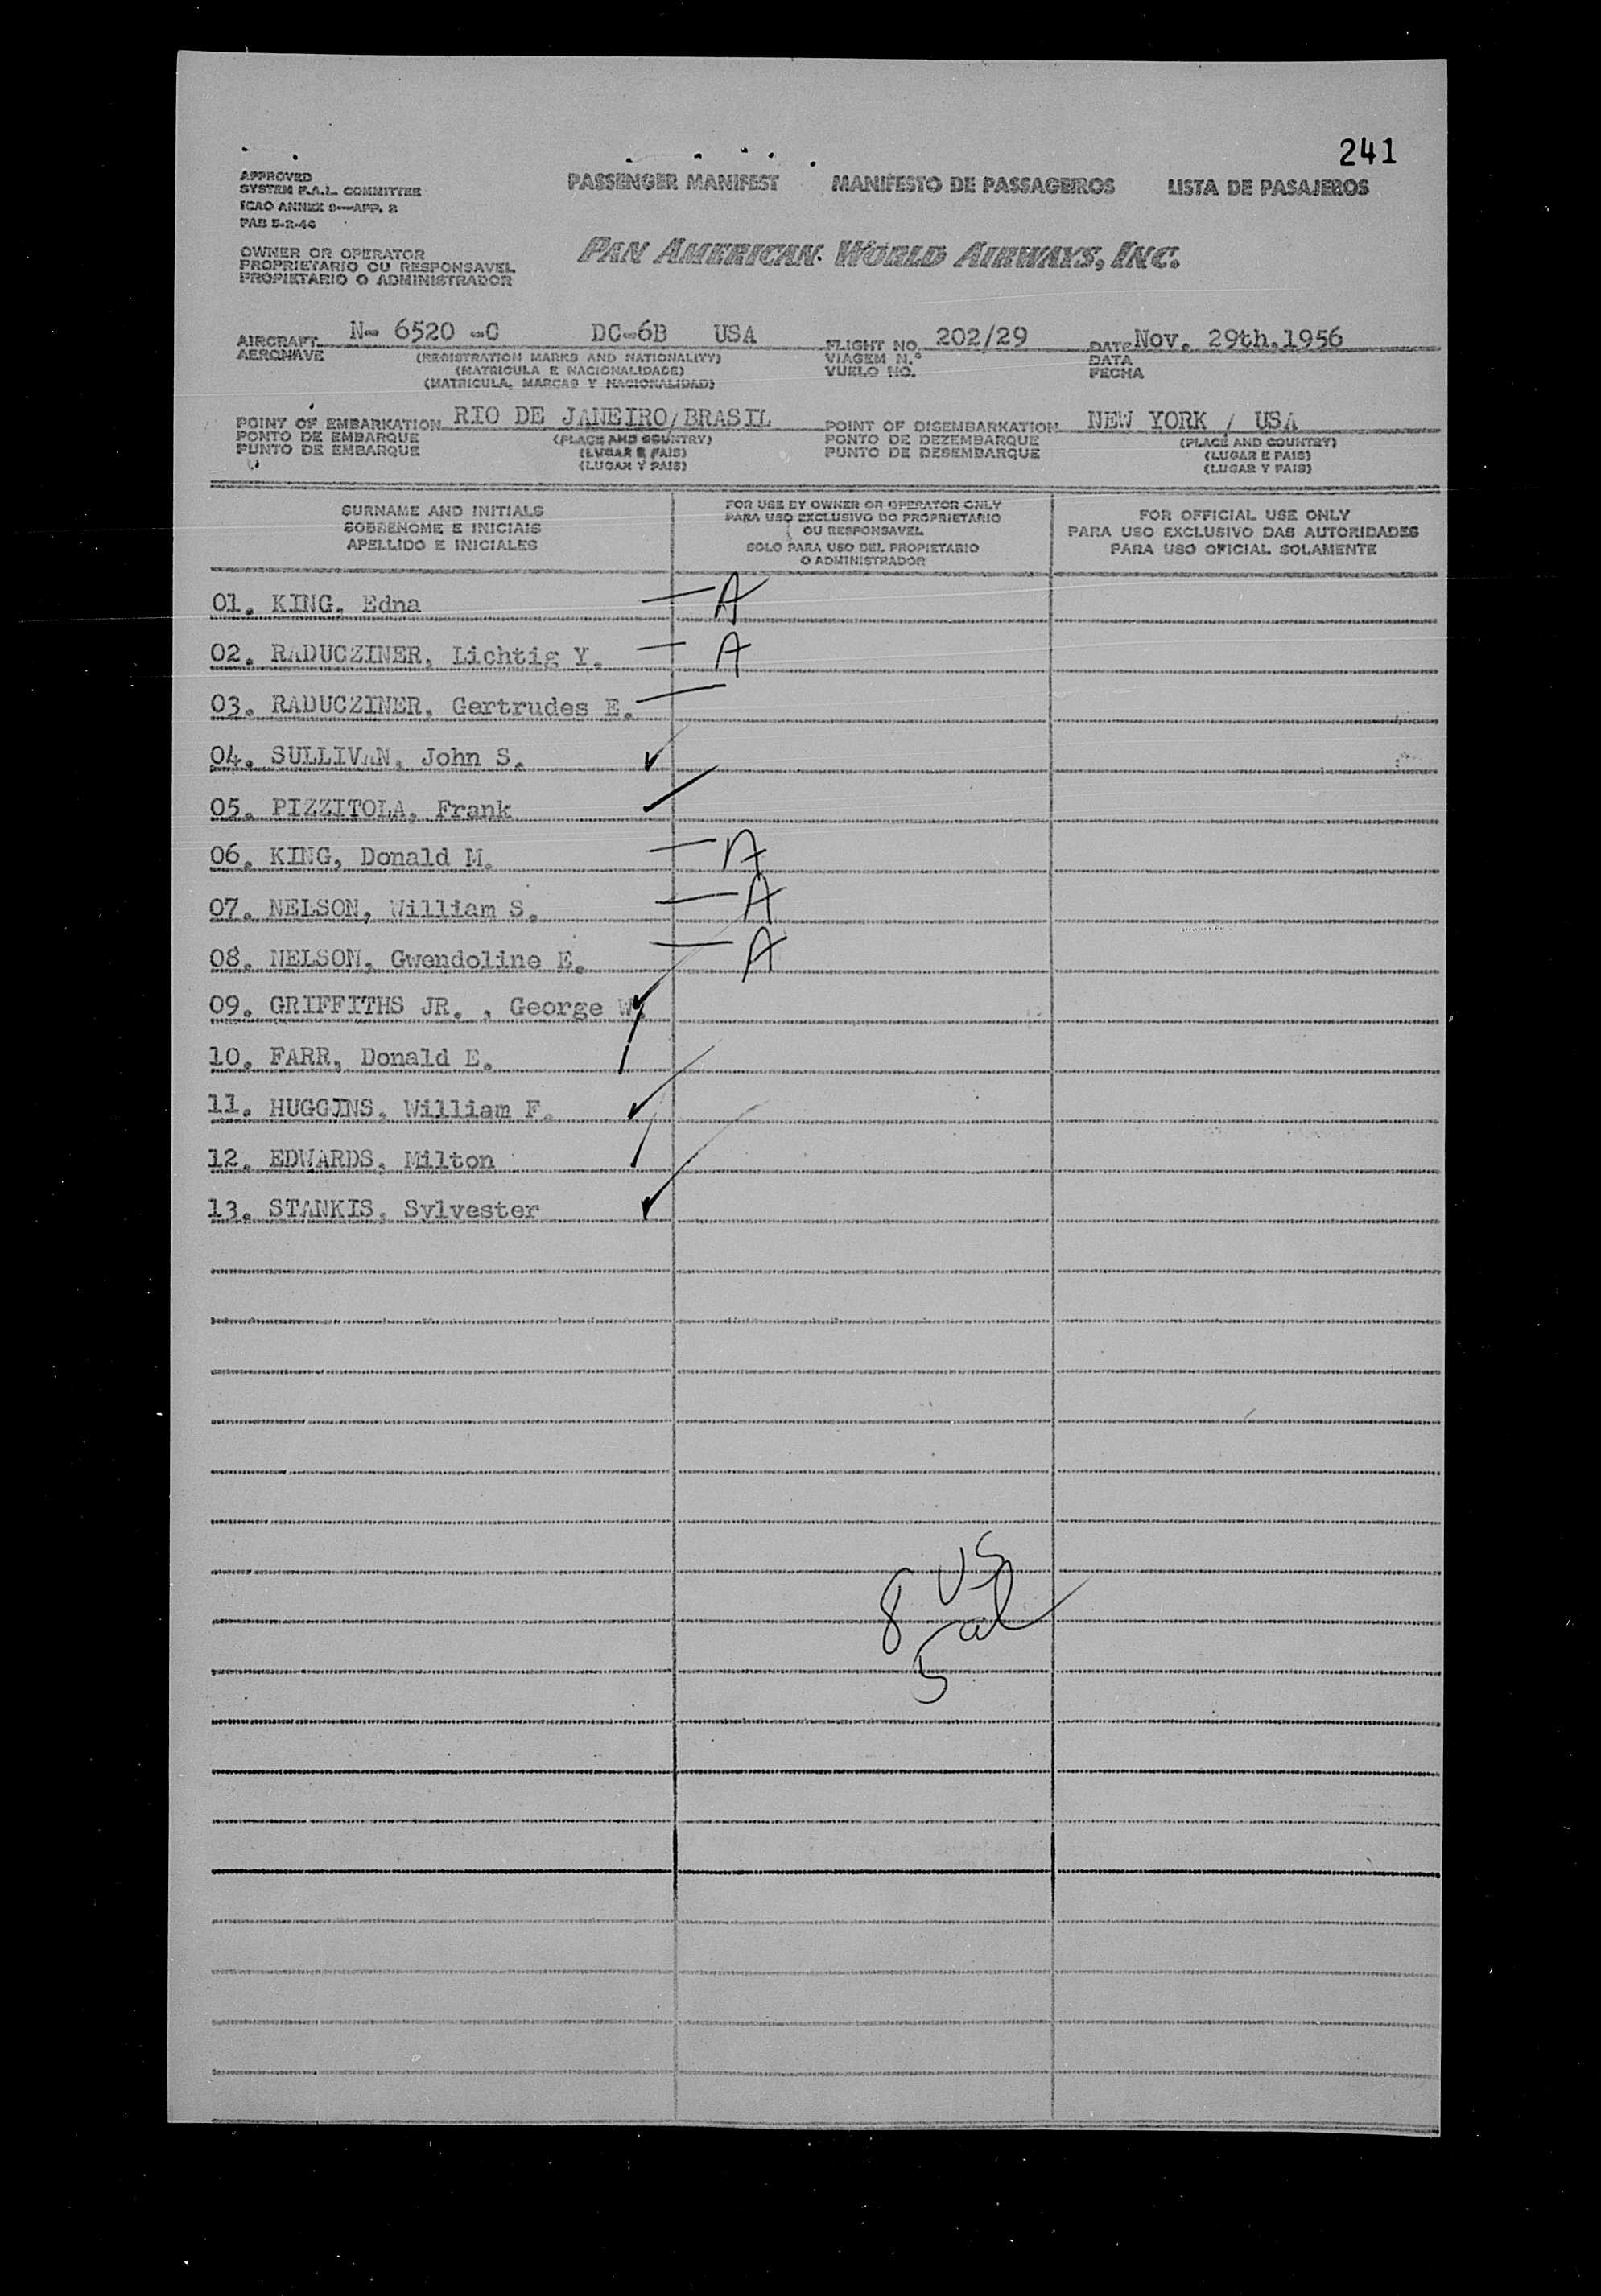 241
APPROVED
SYSTEM F.A.L. COMMITTEE
ICAO ANNEX 9—APP. 2
PAB 5-2-46
PASSENGER MANIFEST MANIFESTO DE PASSAGEIROS LISTA DE PASAJEROS
OWNER OR OPERATOR
PROPRIETARIO OU RESPONSAVEL
PROPIETARIO O ADMINISTRADOR
PAN AMERICAN WORLD AIRWAYS, INC.
AIRCRAFT N- 6520 -C DC-6B USA FLIGHT NO. 202/29 DATE Nov. 29th.1956
AERONAVE (REGISTRATION MARKS AND NATIONALITY) VIAGEM N.° DATA
(MATRICULA E NACIONALIDADE) VUELO NO. FECHA
(MATRICULA, MARCAS Y NACIONALIDAD)
POINT OF EMBARKATION RIO DE JANEIRO/BRASIL POINT OF DISEMBARKATION NEW YORK / USA
PONTO DE EMBARQUE (PLACE AND COUNTRY) PONTO DE DEZEMBARQUE (PLACE AND COUNTRY)
PUNTO DE EMBARQUE (LUGAR E PAIS) PUNTO DE DESEMBARQUE (LUGAR E PAIS)
(LUGAR Y PAIS) (LUGAR Y PAIS)
SURNAME AND INITIALS
SOBRENOME E INICIAIS
APELLIDO E INICIALES
FOR USE BY OWNER OR OPERATOR ONLY
PARA USO EXCLUSIVO DO PROPRIETARIO
OU RESPONSAVEL
SOLO PARA USO DEL PROPIETARIO
O ADMINISTRADOR
FOR OFFICIAL USE ONLY
PARA USO EXCLUSIVO DAS AUTORIDADES
PARA USO OFICIAL SOLAMENTE
01. KING, Edna — A
02. RADUCZINER, Lichtig Y. — A
03. RADUCZINER, Gertrudes E. —
04. SULLIVAN, John S. ✓
05. PIZZITOLA, Frank
06. KING, Donald M. — A
07. NELSON, William S. — A
08. NELSON, Gwendoline E. — A
09. GRIFFITHS JR. , George W. ✓
10. FARR, Donald E.
11. HUGGINS, William F. ✓
12. EDWARDS, Milton
13. STANKIS, Sylvester ✓
8 US
5 al